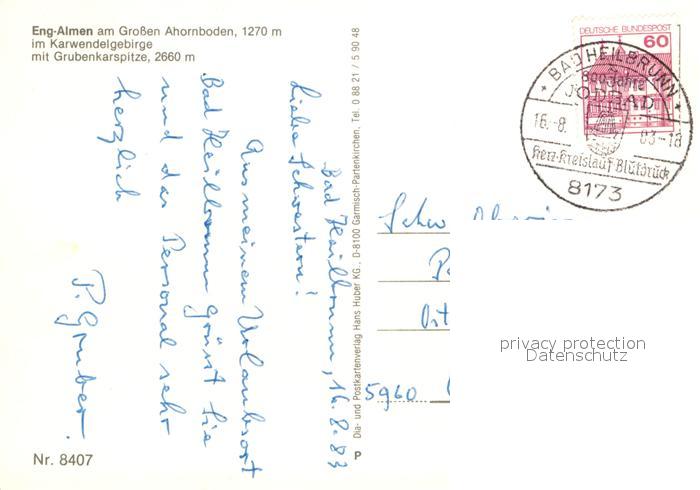 Eng-Almen am Großen Ahornboden, 1270 m
im Karwendelgebirge
mit Grubenkarspitze, 2660 m
Bad Heilbrunn, 16.8.83
Liebe Schwestern!
Aus meinem Urlaubsort
Bad Heilbrunn grüßt Sie
und das Personal sehr
herzlich
P. Gruber.
Nr. 8407
Dia- und Postkartenverlag Hans Huber KG., D-8100 Garmisch-Partenkirchen, Tel. 0 88 21 / 5 90 48
P
DEUTSCHE BUNDESPOST
60
* BAD HEILBRUNN *
800 Jahre
JODBAD
16.-8. 83-18
Herz-Kreislauf-Blutdruck
8173
Schw.
5960
privacy protection
Datenschutz